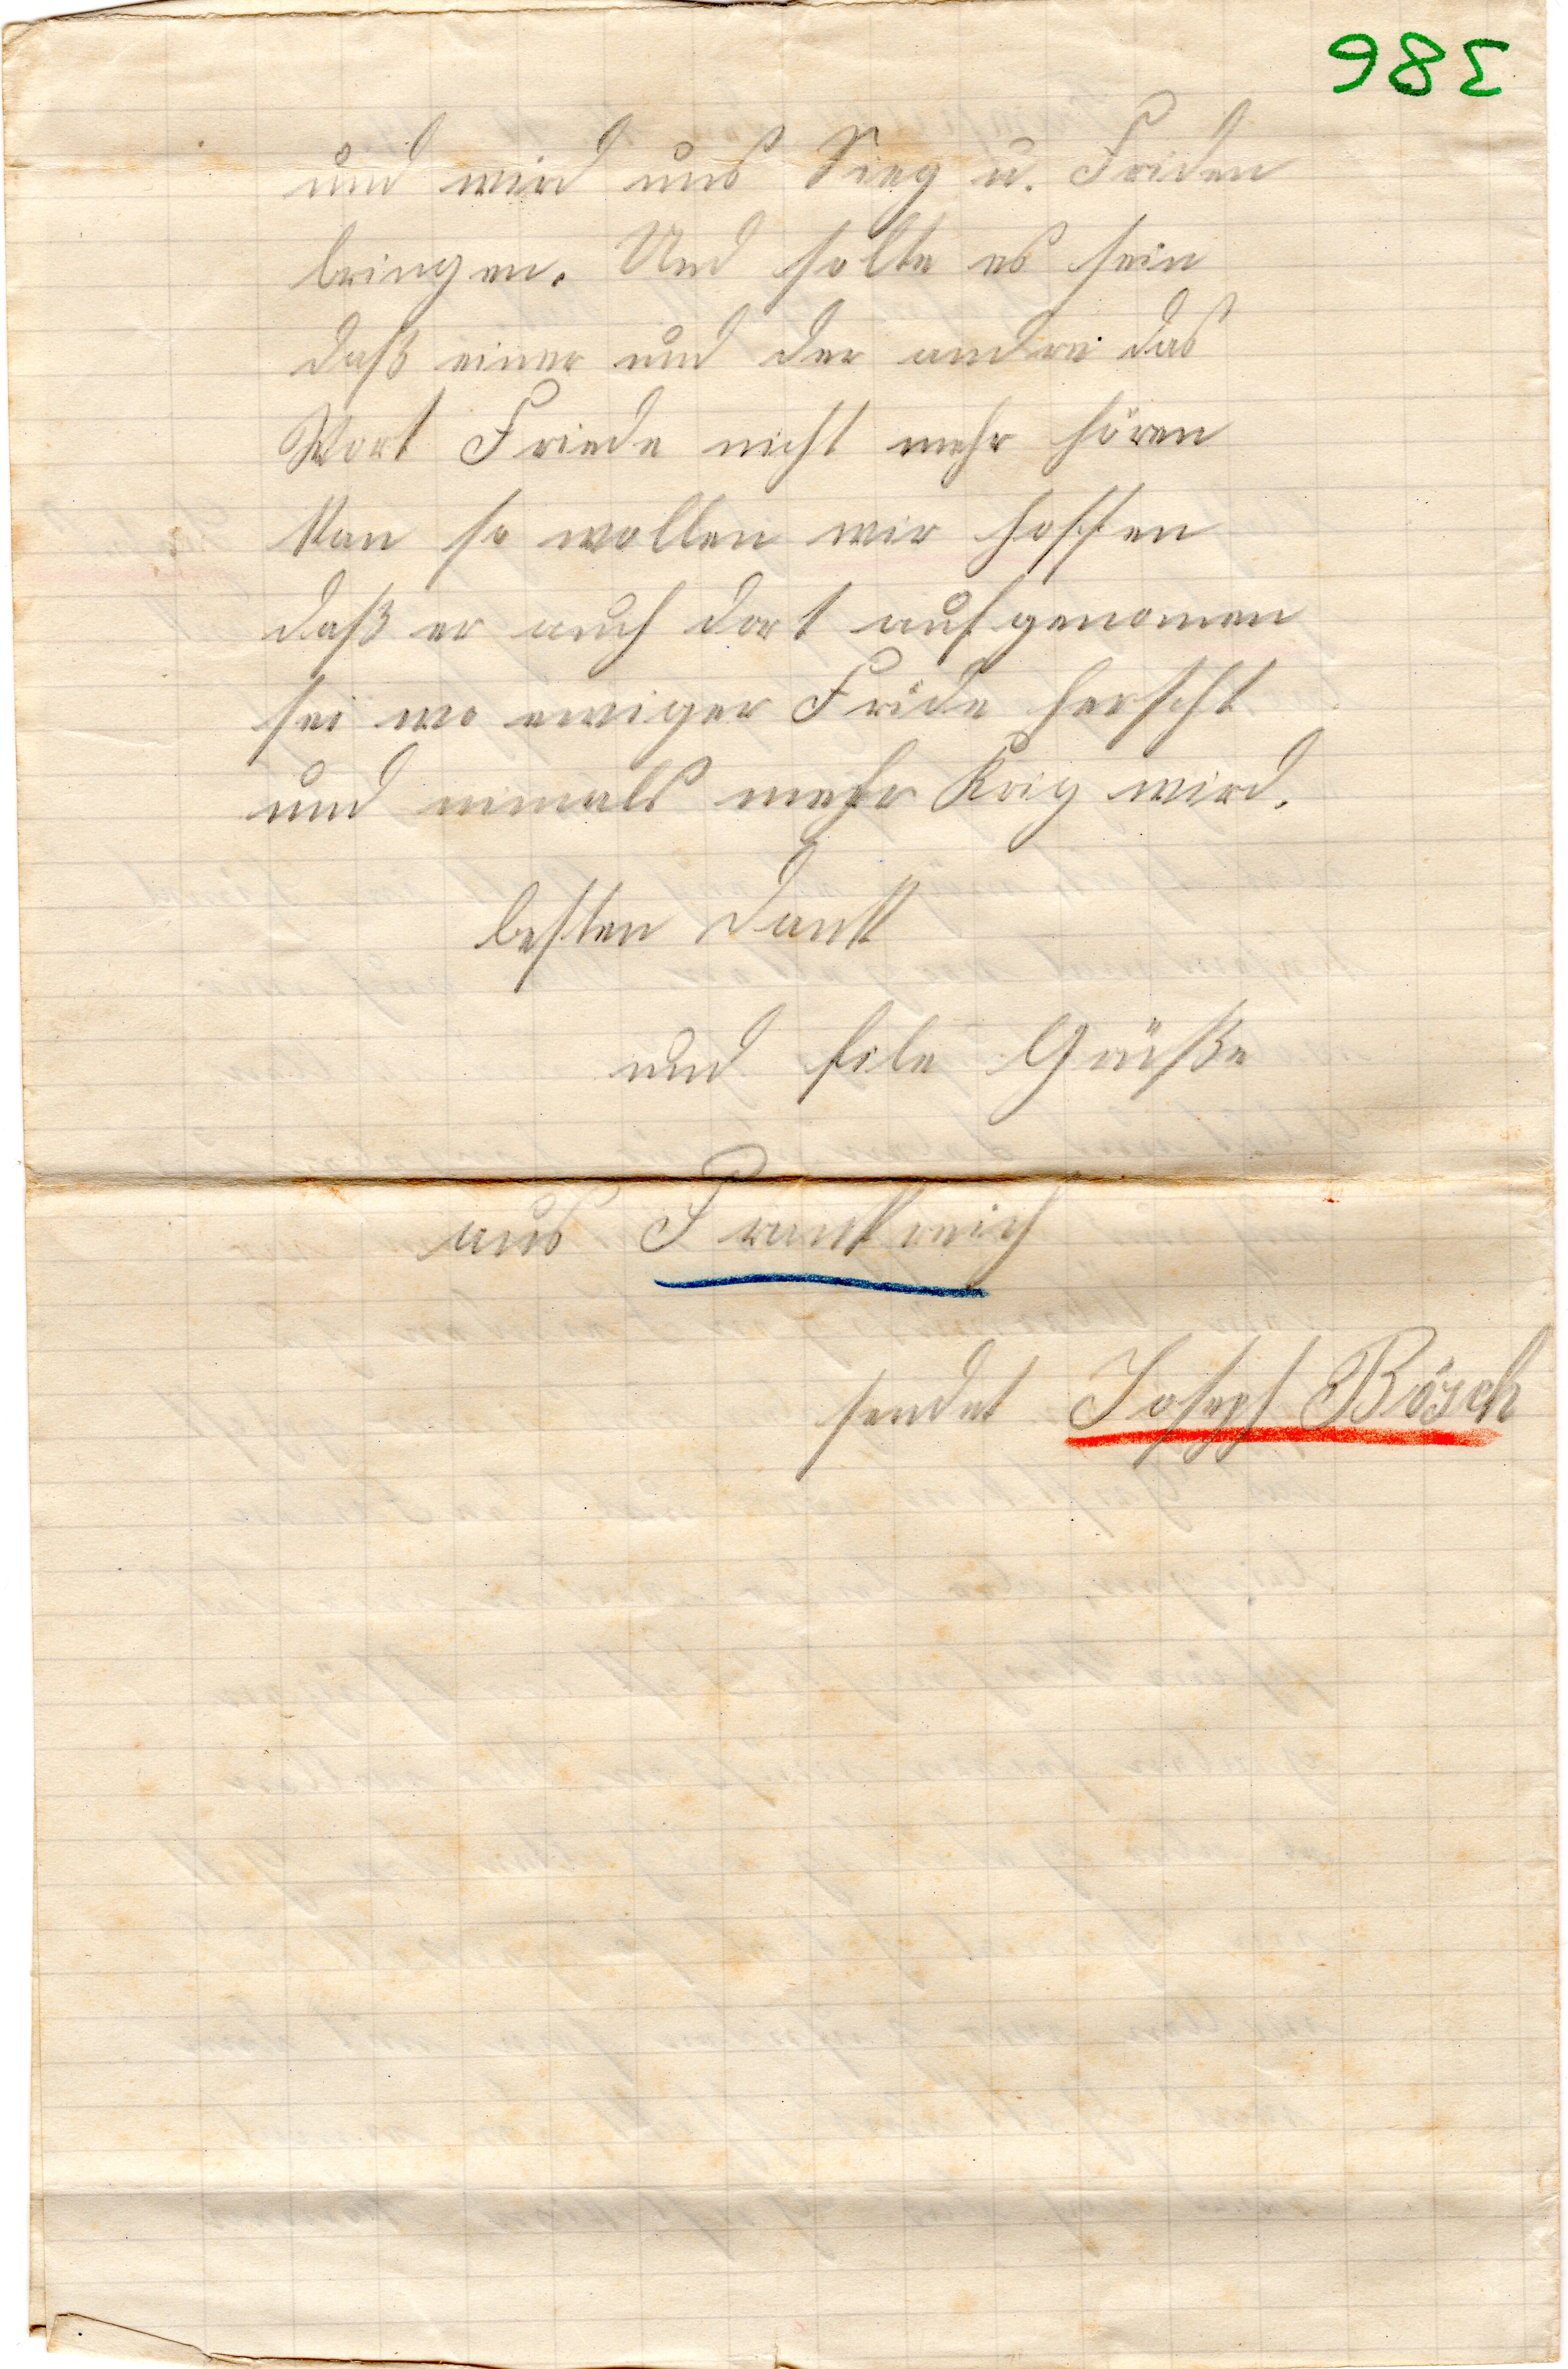 386
und wird uns Sieg u. Friden
bringen. Und solte es sein
daß einer und der andre das
Wort Friede nicht mehr hören
kan so wollen wir hoffen
daß er auch dort aufgenomen
sei wo ewiger Fride herscht
und nimals mehr Krig wird.
besten Dank
und file Grüße
aus Frankreich
sendet Joseph Bösch